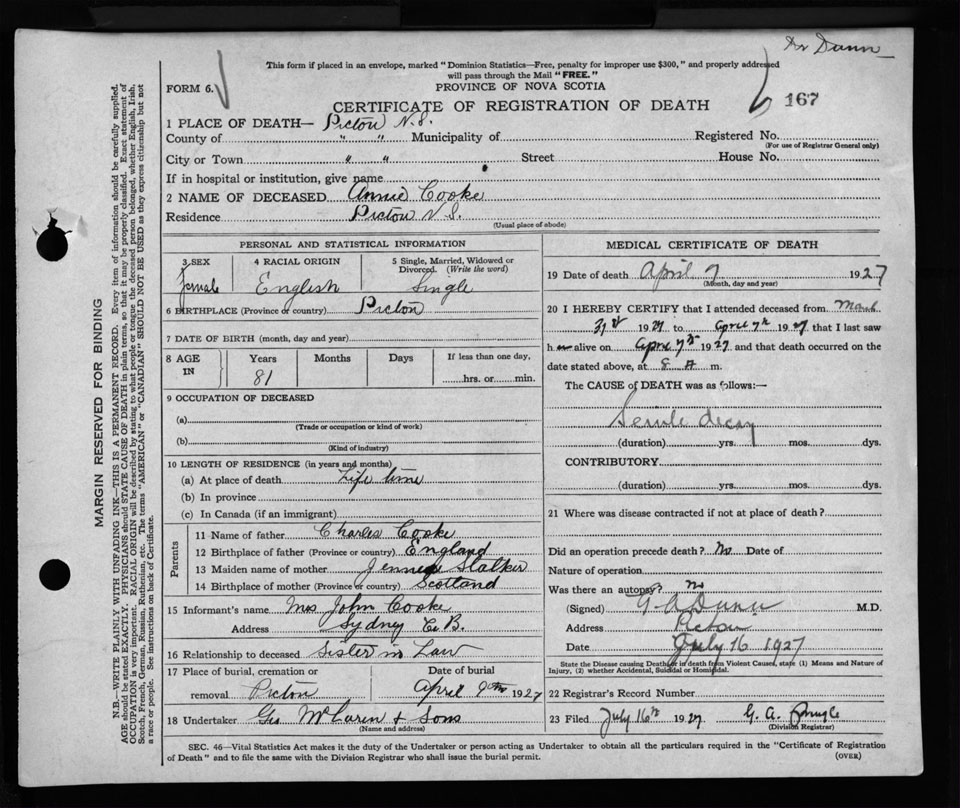 Dr Dunn
This form if placed in an envelope, marked "Dominion Statistics—Free, penalty for improper use $300," and properly addressed
will pass through the Mail "FREE."
FORM 6.
PROVINCE OF NOVA SCOTIA
CERTIFICATE OF REGISTRATION OF DEATH
167
1 PLACE OF DEATH— Pictou N.S.
County of " " Municipality of Registered No.
(For use of Registrar General only)
City or Town " " Street House No.
If in hospital or institution, give name
2 NAME OF DECEASED Annie Cooke
Residence Pictou N.S.
(Usual place of abode)
PERSONAL AND STATISTICAL INFORMATION
3 SEX 4 RACIAL ORIGIN 5 Single, Married, Widowed or
Divorced. (Write the word)
Female English Single
6 BIRTHPLACE (Province or country) Pictou
7 DATE OF BIRTH (month, day and year)
8 AGE Years Months Days If less than one day,
IN 81 hrs. or min.
9 OCCUPATION OF DECEASED
(a)
(Trade or occupation or kind of work)
(b)
(Kind of industry)
10 LENGTH OF RESIDENCE (in years and months)
(a) At place of death Life time
(b) In province
(c) In Canada (if an immigrant)
Parents
11 Name of father Charles Cooke
12 Birthplace of father (Province or country) England
13 Maiden name of mother Stalker
14 Birthplace of mother (Province or country) Scotland
15 Informant's name Mrs John Cooke
Address Sydney C.B.
16 Relationship to deceased Sister in Law
17 Place of burial, cremation or Date of burial
removal Pictou April 9th 1927
18 Undertaker Geo McLaren & Sons
(Name and address)
MEDICAL CERTIFICATE OF DEATH
19 Date of death April 7 1927
(Month, day and year)
20 I HEREBY CERTIFY that I attended deceased from March
31st 1927 to April 7th 1927 that I last saw
her alive on April 7th 1927 and that death occurred on the
date stated above, at 8 A m.
The CAUSE of DEATH was as follows:—
Senile decay
(duration) yrs. mos. dys.
CONTRIBUTORY
(duration) yrs. mos. dys.
21 Where was disease contracted if not at place of death?
Did an operation precede death? No Date of
Nature of operation
Was there an autopsy? No
(Signed) G A Dunn M.D.
Address Pictou
Date July 16 1927
State the Disease causing Death, or in death from Violent Causes, state (1) Means and Nature of
Injury, (2) whether Accidental, Suicidal or Homicidal.
22 Registrar's Record Number
23 Filed July 16th 1927 G. A.
(Division Registrar)
SEC. 46—Vital Statistics Act makes it the duty of the Undertaker or person acting as Undertaker to obtain all the particulars required in the "Certificate of Registration
of Death" and to file the same with the Division Registrar who shall issue the burial permit.
(OVER)
MARGIN RESERVED FOR BINDING
N.B.—WRITE PLAINLY WITH UNFADING INK—THIS IS A PERMANENT RECORD. Every item of information should be carefully supplied.
AGE should be stated EXACTLY. PHYSICIANS should STATE CAUSE OF DEATH in plain terms, so that it may be properly classified. Exact statement of
OCCUPATION is very important. RACIAL ORIGIN will be described by stating to what people or tongue the deceased person belonged, whether English, Irish,
Scotch, French, German, Russian, Ruthenian, etc. The terms "AMERICAN" or "CANADIAN" SHOULD NOT BE USED as they express citizenship but not
a race or people. See instructions on back of Certificate.